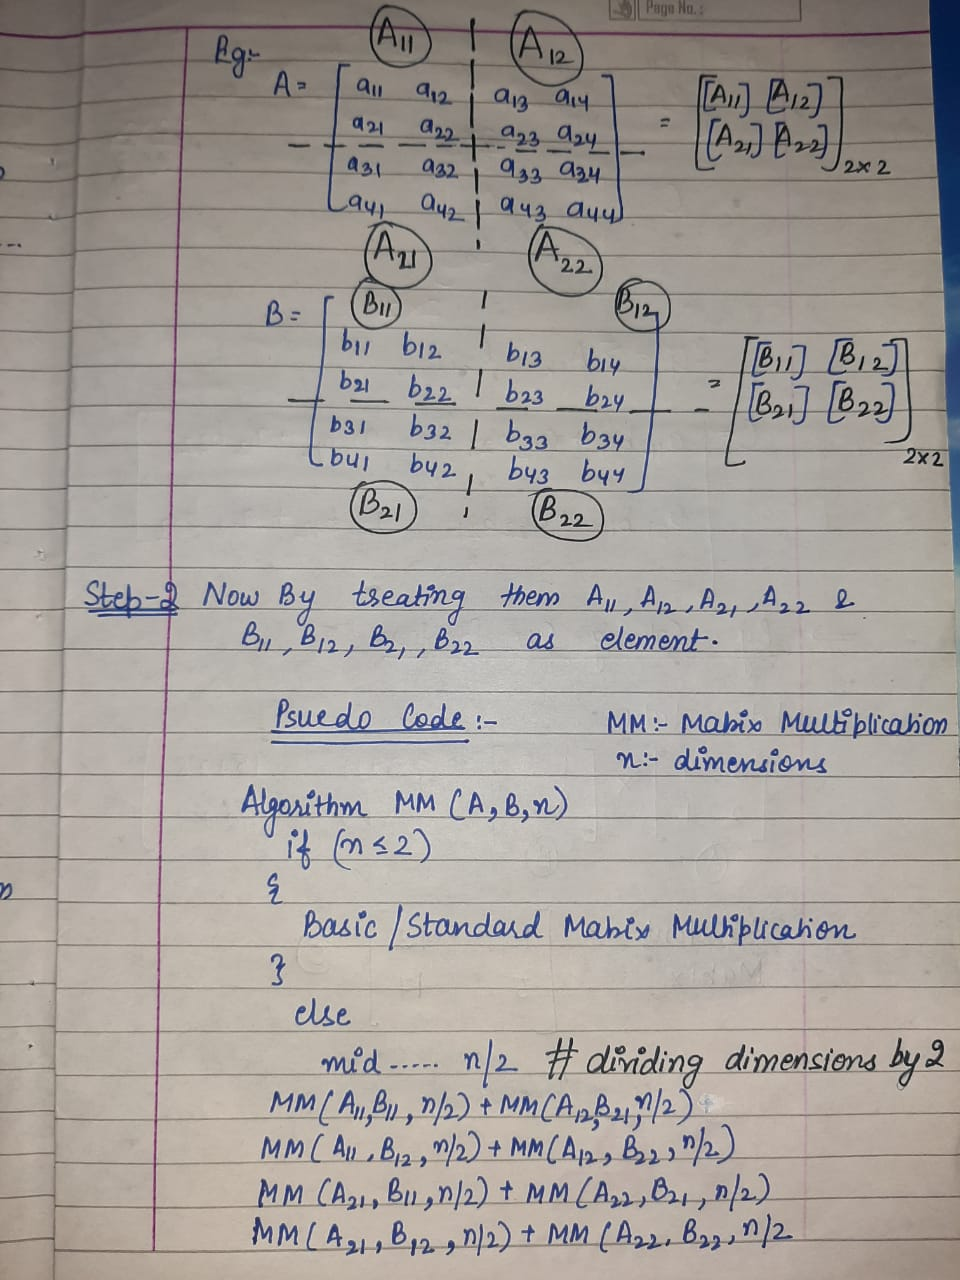 Page No.:
A11 A12
Eg:-
A = [ a11 a12 a13 a14
a21 a22 a23 a24
a31 a32 a33 a34
a41 a42 a43 a44 ]
= [ [A11] [A12]
[A21] [A22] ] 2x2
A21 A22
B = [ B11 B12
b11 b12 b13 b14
b21 b22 b23 b24
b31 b32 b33 b34
b41 b42 b43 b44 ]
= [ [B11] [B12]
[B21] [B22] ] 2x2
B21 B22
Step-2 Now By treating them A11, A12, A21, A22 &
B11, B12, B21, B22 as element.
Psuedo Code :- MM:- Matrix Multiplication
n:- dimensions
Algorithm MM (A, B, n)
if (n ≤ 2)
{
Basic / Standard Matrix Multiplication
}
else
mid ..... n/2 # dividing dimensions by 2
MM(A11, B11, n/2) + MM(A12, B21, n/2)
MM(A11, B12, n/2) + MM(A12, B22, n/2)
MM (A21, B11, n/2) + MM (A22, B21, n/2)
MM(A21, B12, n/2) + MM(A22, B22, n/2